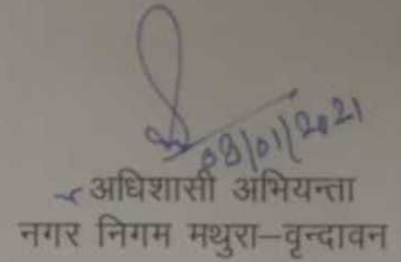 08/01/2021
अधिशासी अभियन्ता
नगर निगम मथुरा–वृन्दावन